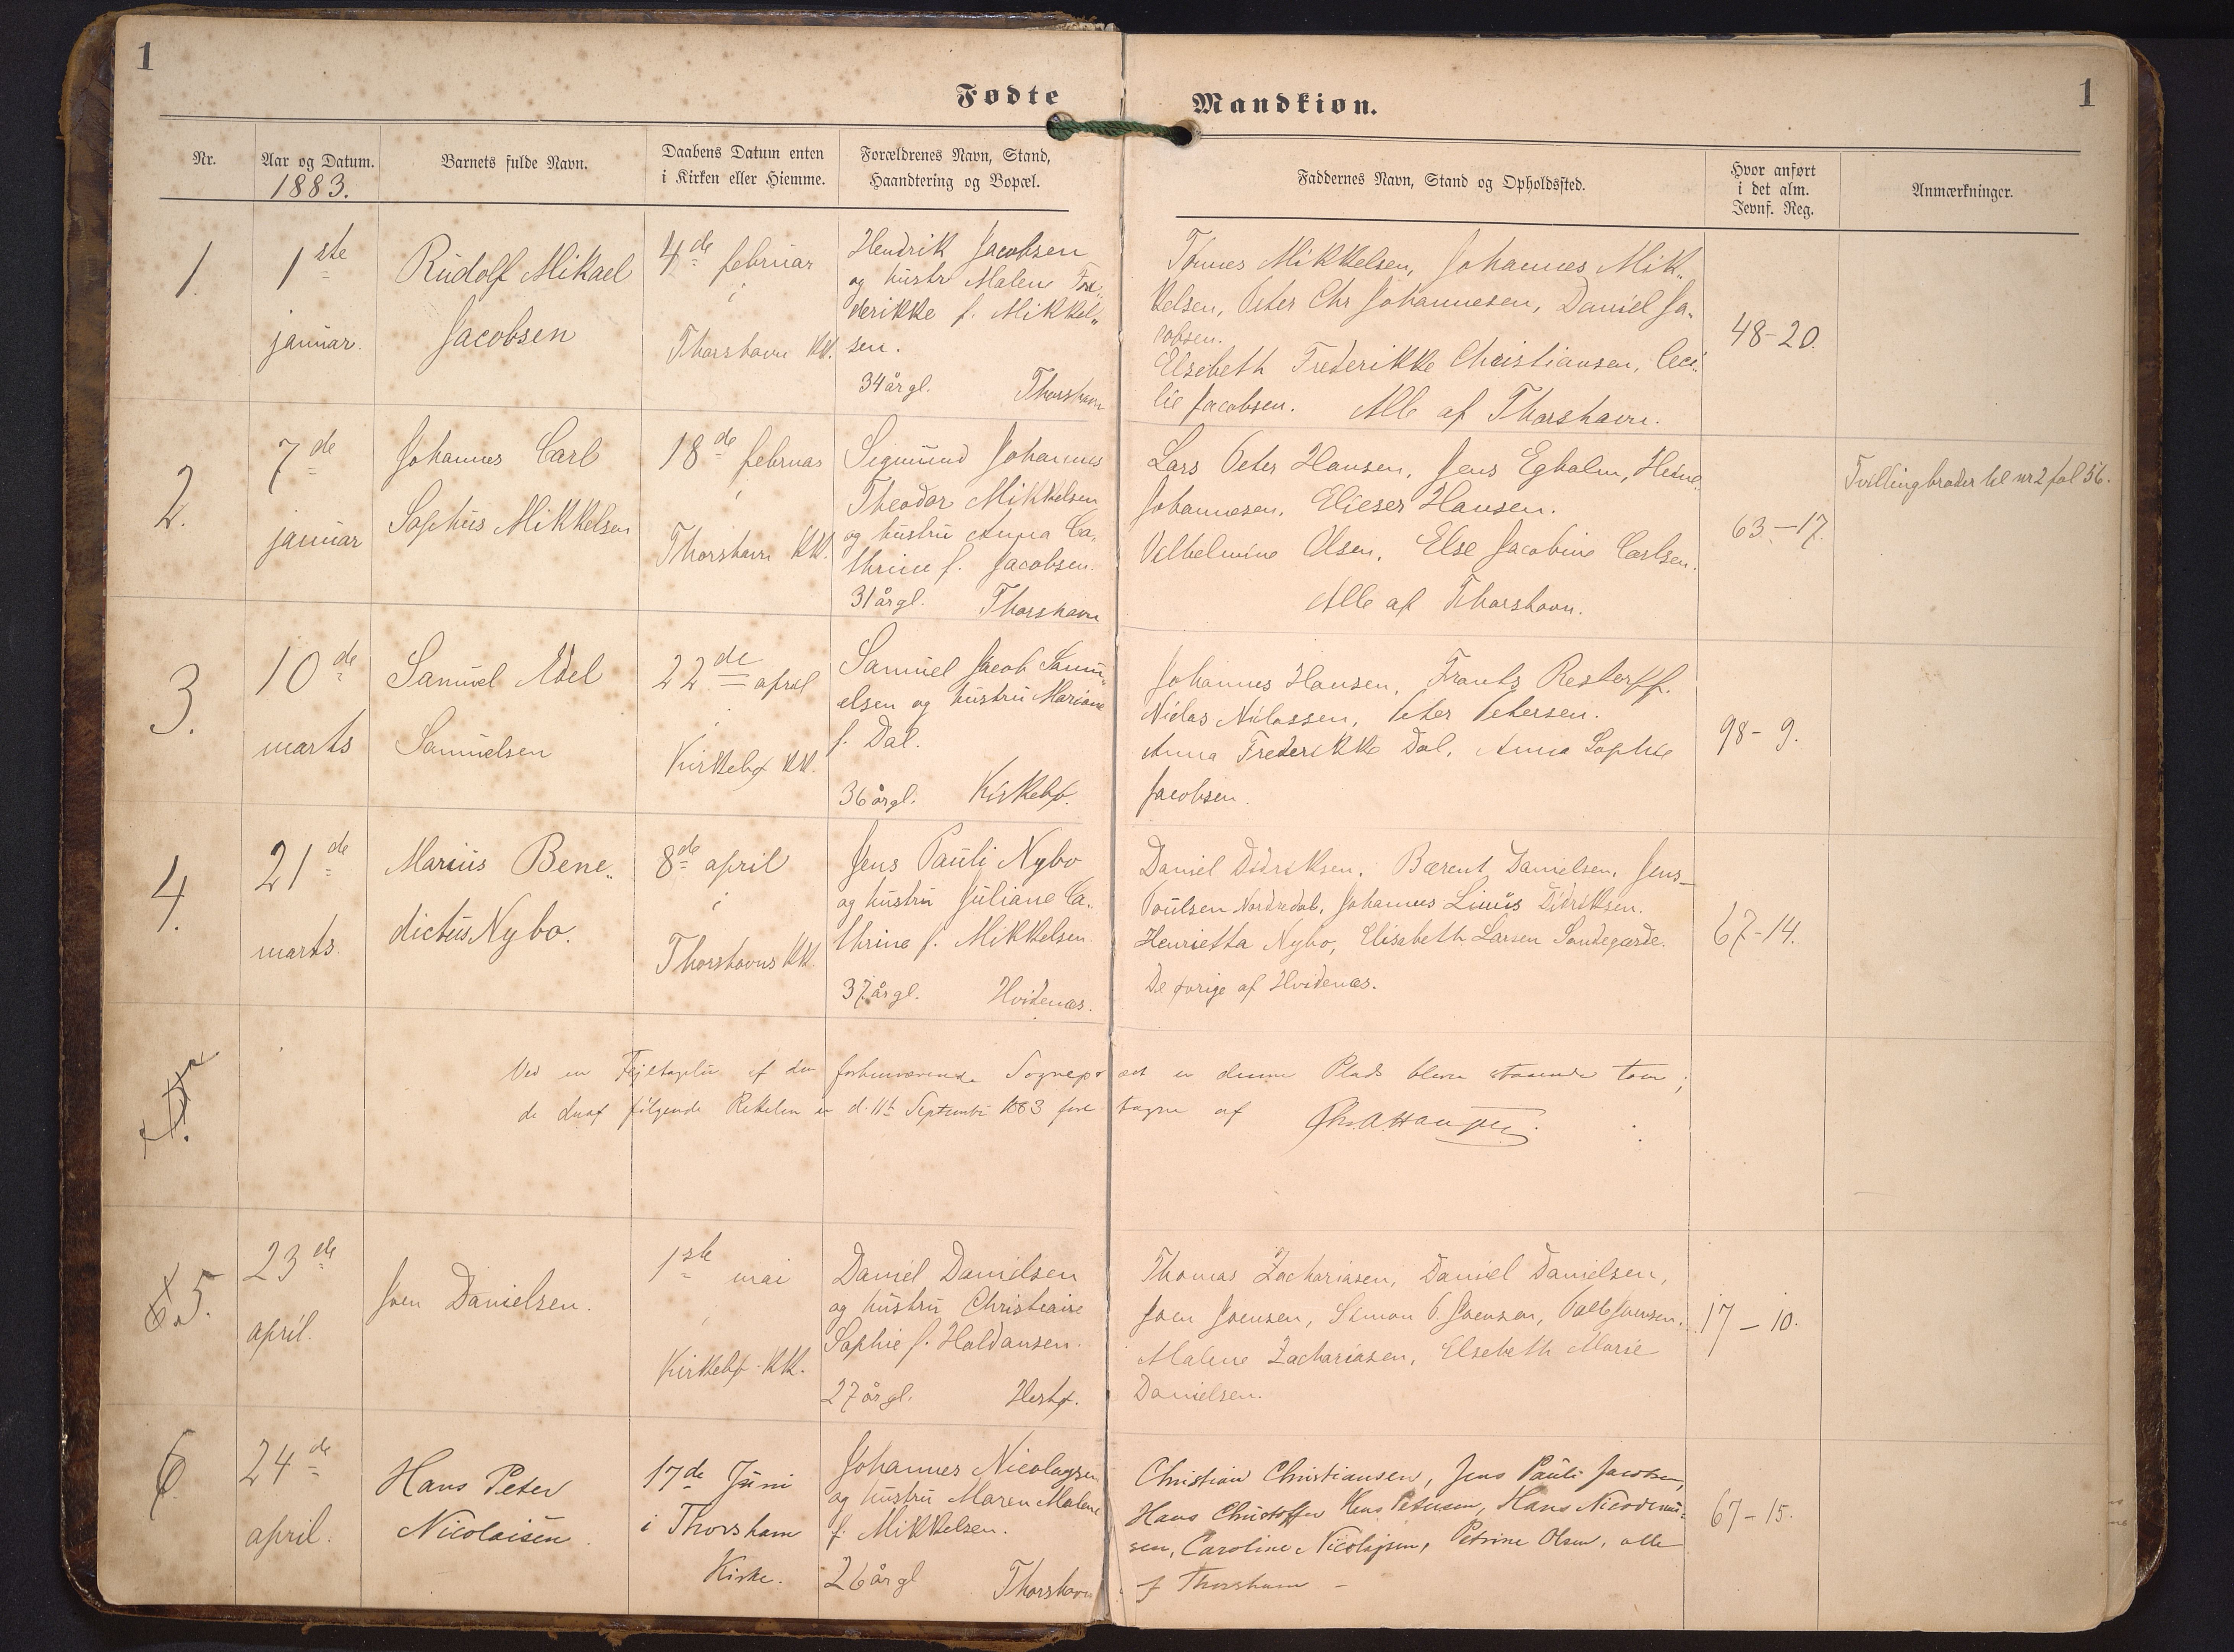 1
1
Fødte
Mandkiøn.
Nr.
Aar og Datum.
1883.
Barnets fulde Navn.
Daabens Datum enten
i Kirken eller Hiemme.
Forældrenes Navn, Stand,
Haandtering og Bopæl.
Faddernes Navn, Stand og Opholdssted.
Hvor anført
i det alm.
Jevnf. Reg.
Anmærkninger.
1.
1ste
januar.
Rudolf Mikael
Jacobsen
4de februar
i
Thorshavn KK.
Hendrik Jacobsen
og hustru Malene Fre„
derikke f. Mikkel„
sen.
34 årgl. Thorshavn
Tønnes Mikkelsen, Johannes Mik„
kelsen, Peter Chr Johannesen, Daniel Ja„
cobsen.
Elsebeth Frederikke Christiansen, Ceci„
lie Jacobsen. Alle af Thorshavn.
48-20.
2.
7de
januar
Johannes Carl
Sophus Mikkelsen
18de februar
i
Thorshavn KK.
Sigmund Johannes
Theodor Mikkelsen
og hustru Anna Ca„
thrine f. Jacobsen.
31 årgl. Thorshavn
Lars Peter Hansen, Jens Egholm,
Johannesen, Elieser Hansen.
Vilhelmine Olsen, Else Jacobine Carlsen.
Alle af Thorshavn.
63-17.
Tvillingbroder til nr 2 fol 56.
3.
10de
marts
Samuel Edel
Samuelsen
22de april
i
Kirkebø KK.
Samuel Jacob Samu„
elsen og hustru Mariane
f. Dal.
36 årgl. Kirkebø.
Johannes Hansen, Frants Restorff.
Niclas Niclassen, Peter Petersen.
Anna Frederikke Dal, Anna Sophie
Jacobsen.
98-9.
4.
21de
marts.
Marius Bene„
dictus Nybo.
8de april
i
Thorshavns KK.
Jens Pauli Nybo
og hustru Juliane Ca„
thrine f. Mikkelsen.
37 årgl. Hvidenæs.
Daniel Didriksen, Bærent Danielsen, Jens
Poulsen Nordredal, Johannes Linus Didriksen.
Henrietta Nybo, Elisebeth Larsen Sandegærde.
De øvrige af Hvidenæs.
67-14.
Ved en Fejltagelse af den forhenværende Sognepræst er denne Plads bleven staaende tom;
de deraf følgende Rettelser er d. 11te September 1883 fore tagne af
5.
23de
april.
Joen Danielsen.
1ste mai
i
Kirkebø KK.
Daniel Danielsen
og hustru Christiane
Sophie f. Haldansen.
27 årgl. Hestø.
Thomas Zachariasen, Daniel Danielsen,
Joen Joensen, Simon P. Joensen, Palle Joensen,
Malene Zachariasen, Elsebeth Marie
Danielsen.
17-10.
6
24de
april.
Hans Peter
Nicolaisen.
17de Juni
i Thorshavn
Kirke.
Johannes Nicolaysen
og hustru Maren Malene
f. Mikkelsen.
26 årgl Thorshavn
Christian Christiansen, Jens Pauli Jacobsen,
Hans Christoffer Hans Petersen, Hans Nicodemus„
sen, Caroline Nicolajsen, Petrine Olsen, alle
af Thorshavn -
67-15.